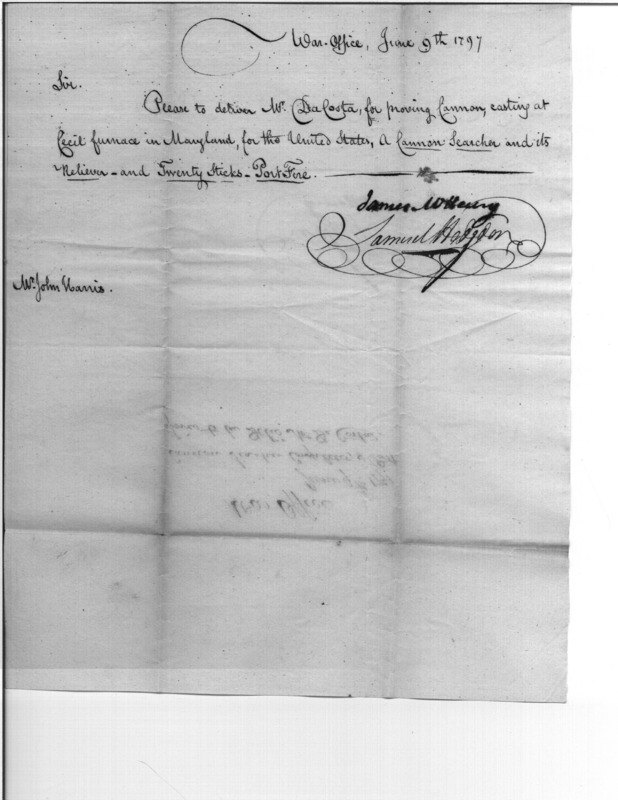 War-Office, June 9th 1797
Sir.
Please to deliver Mr. DaCosta, for proving Cannon, casting at
Cecil furnace in Maryland, for the United States, A Cannon-Searcher and its
Reliever - and Twenty Sticks - Port Fire.
James McHenry
Samuel Hodgdon
Mr. John Harris.
War Office